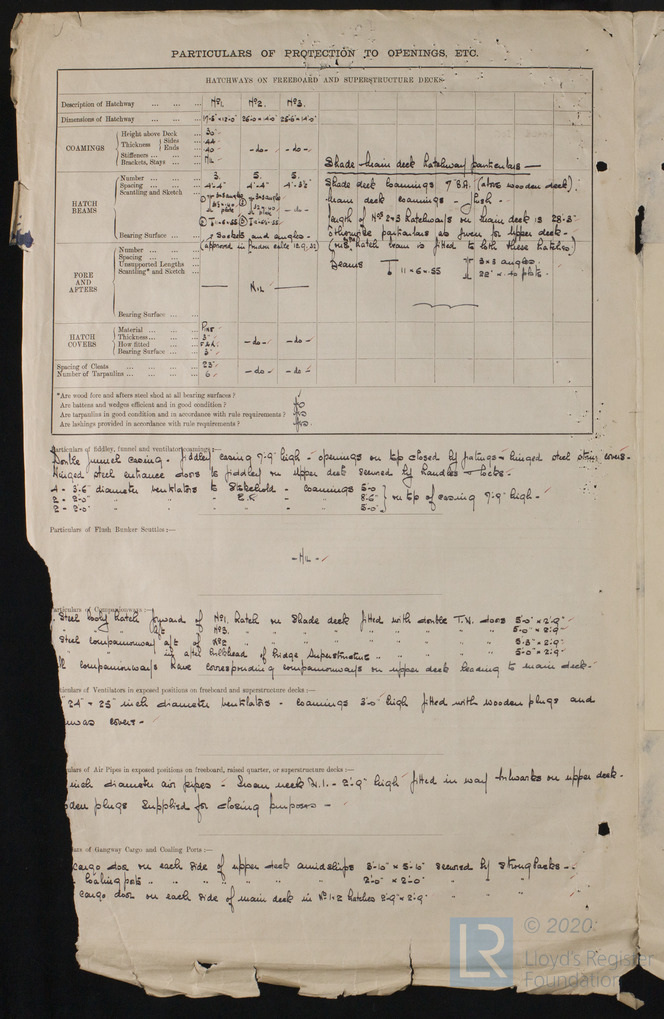 PARTICULARS OF PROTECTION TO OPENINGS, ETC.
HATCHWAYS ON FREEBOARD AND SUPERSTRUCTURE DECKS
Description of Hatchway ... ... ... No1. No2. No3.
Dimensions of Hatchway ... ... ... 17-6" × 12-0" 26-0 × 14-0" 25-6 × 14-0"
COAMINGS
Height above Deck ... 30"
Thickness Sides ... .44
Ends ... .40 -do- -do-
Stiffeners ... ... ... Nil
Brackets, Stays ... ...
HATCH BEAMS
Number ... ... ... 3. 5. 5.
Spacing ... ... ... 4'-4" 4'-4" 4'-3½"
Scantling and Sketch
-do-
Bearing Surface ... ... Sockets and angles
(approved in London 12.9.22)
FORE AND AFTERS
Number ... ... ...
Spacing ... ... ...
Unsupported Lengths ...
Scantling* and Sketch ...
NIL
Bearing Surface ... ...
HATCH COVERS
Material ... ... ... Pine
Thickness ... ... ... 3" -do- -do-
How fitted ... ... F & A
Bearing Surface ... ... 3"
Spacing of Cleats ... ... ... 23"
Number of Tarpaulins ... ... ... 6 -do- -do-
Shade & Main deck hatchway particulars —
Shade deck coamings 7" B.A. (above wooden deck).
Main deck coamings - flush -
Length of Nos 2 & 3 hatchways on main deck is 28-3"
Otherwise particulars as given for upper deck -
(hatch beam is fitted to both these hatches)
Beams 11 × 6 × .55 3 × 3 angles.
22" × .40 plate.
*Are wood fore and afters steel shod at all bearing surfaces?
Are battens and wedges efficient and in good condition?
Are tarpaulins in good condition and in accordance with rule requirements?
Are lashings provided in accordance with rule requirements?
Particulars of fiddley, funnel and ventilator coamings:—
Double funnel casing. Fiddley casing 7'-9" high - openings on top closed by gratings & hinged steel covers-
Hinged steel entrance doors to fiddley on upper deck secured by handles & locks -
4 - 3'-6" diameter ventilators to Stokehold - coamings 5'-0"
2 - 2'-0" " " " E.R. " 8'-6" } on top of casing 7'-9" high -
2 - 2'-0" " " " " " 5'-0"
Particulars of Flush Bunker Scuttles:—
- Nil -
Particulars of Companionways:—
Steel booby hatch forward of No1. hatch on Shade deck fitted with double T.W. doors 5'-0" × 2'-9"
" " " aft " No3. " " " " " " " " 5'-0" × 2'-9"
Steel companionway aft of No2 " " " " " " 5'-3" × 2'-9"
" " in after bulkhead of bridge Superstructure " " " 5'-0" × 2'-9"
All companionways have corresponding companionways on upper deck leading to main deck -
Particulars of Ventilators in exposed positions on freeboard and superstructure decks:—
24" & 25" inch diameter ventilators - coamings 3'-0" high fitted with wooden plugs and
covers -
Particulars of Air Pipes in exposed positions on freeboard, raised quarter, or superstructure decks:—
inch diameter air pipes - Swan neck W.I. - 2'-9" high fitted in way bulwarks on upper deck -
plugs supplied for closing purposes -
Particulars of Gangway Cargo and Coaling Ports:—
Cargo door on each side of upper deck amidships 3'-10" × 5'-6" secured by Strongbacks -
Coaling ports " " " " " 2'-0" × 2'-0" " "
Cargo door on each side of main deck in No 1 & 2 hatches 2'-9" × 2'-9" " "
LR
© 2020
Lloyd's Register
Foundation